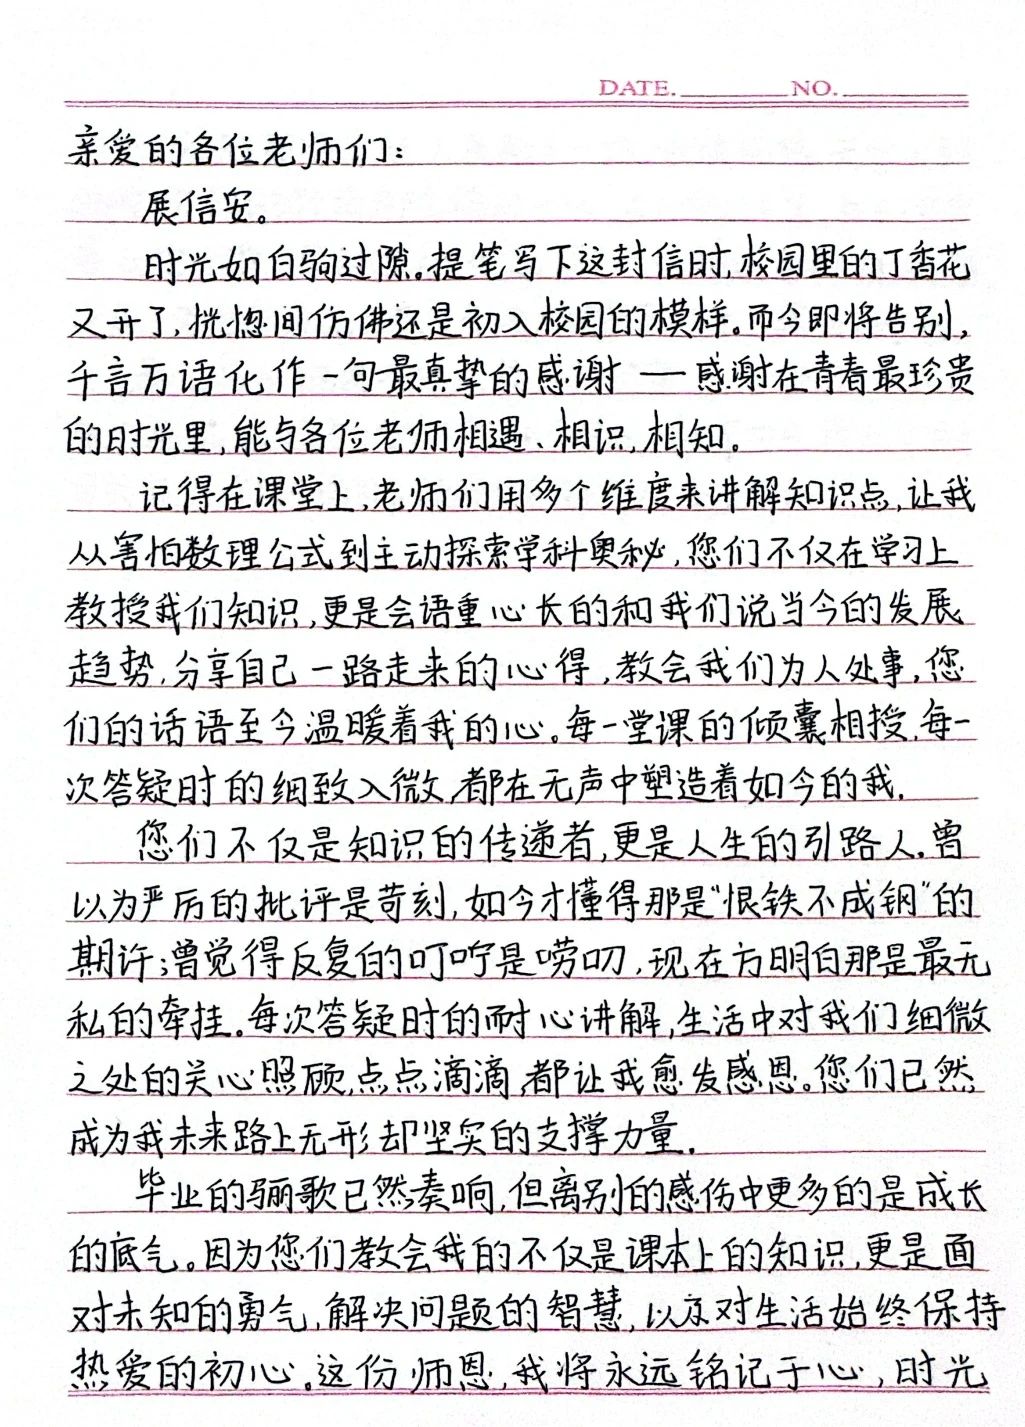 DATE.________NO.________
亲爱的各位老师们：
展信安。
时光如白驹过隙。提笔写下这封信时，校园里的丁香花
又开了，恍惚间仿佛还是初入校园的模样。而今即将告别，
千言万语化作一句最真挚的感谢——感谢在青春最珍贵
的时光里，能与各位老师相遇、相识，相知。
记得在课堂上，老师们用多个维度来讲解知识点，让我
从害怕数理公式到主动探索学科奥秘，您们不仅在学习上
教授我们知识，更是会语重心长的和我们说当今的发展
趋势，分享自己一路走来的心得，教会我们为人处事，您
们的话语至今温暖着我的心。每一堂课的倾囊相授，每一
次答疑时的细致入微，都在无声中塑造着如今的我．
您们不仅是知识的传递者，更是人生的引路人。曾
以为严厉的批评是苛刻，如今才懂得那是“恨铁不成钢”的
期许；曾觉得反复的叮咛是唠叨，现在方明白那是最无
私的牵挂。每次答疑时的耐心讲解，生活中对我们细微
之处的关心照顾，点点滴滴，都让我愈发感恩。您们已然
成为我未来路上无形却坚实的支撑力量．
毕业的骊歌已然奏响，但离别的感伤中更多的是成长
的底气。因为您们教会我的不仅是课本上的知识，更是面
对未知的勇气，解决问题的智慧，以及对生活始终保持
热爱的初心。这份师恩，我将永远铭记于心，时光